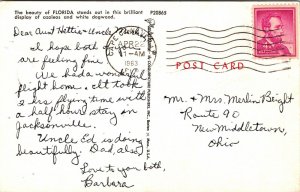 The beauty of FLORIDA stands out in this brilliant
display of azaleas and white dogwood.
P20865
Dear Aunt Hettie & Uncle
I hope both
are feeling fine.
We had a wonderful
flight home. It took
2 hrs flying time with
a half hour stay in
Jacksonville.
Uncle Ed is doing
beautifully. Dad, also.
Love to you both,
Barbara
APR 2
AM
1963
POST CARD
Mr. & Mrs. Merlin Beight
Route 90
New Middletown,
Ohio